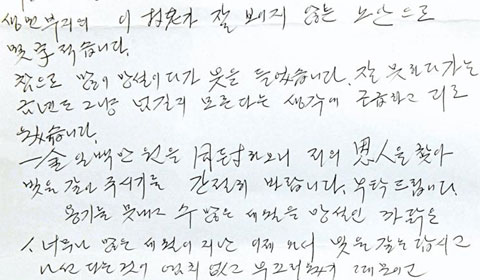 생면부지의 이 老人가 잘 보이지 않는 노안으로
몇 字 적습니다.
참으로 많이 망설이다가 붓을 들었습니다. 잘 못하다가는
금년도 그냥 넘길지 모른다는 생각에 급하고
一金 일백만 원을 同封하오니 저의 恩人을 찾아
빚을 갚아 주시기를 간절히 바랍니다. 부탁드립니다.
용기를 못내고 수 많은 세월을 망설인 까닭은
1. 너무나 많은 세월이 지난 이제 와서 빚을 갚는답시고
나선다는 것이 염치 없고 부끄러웠기 때문이고